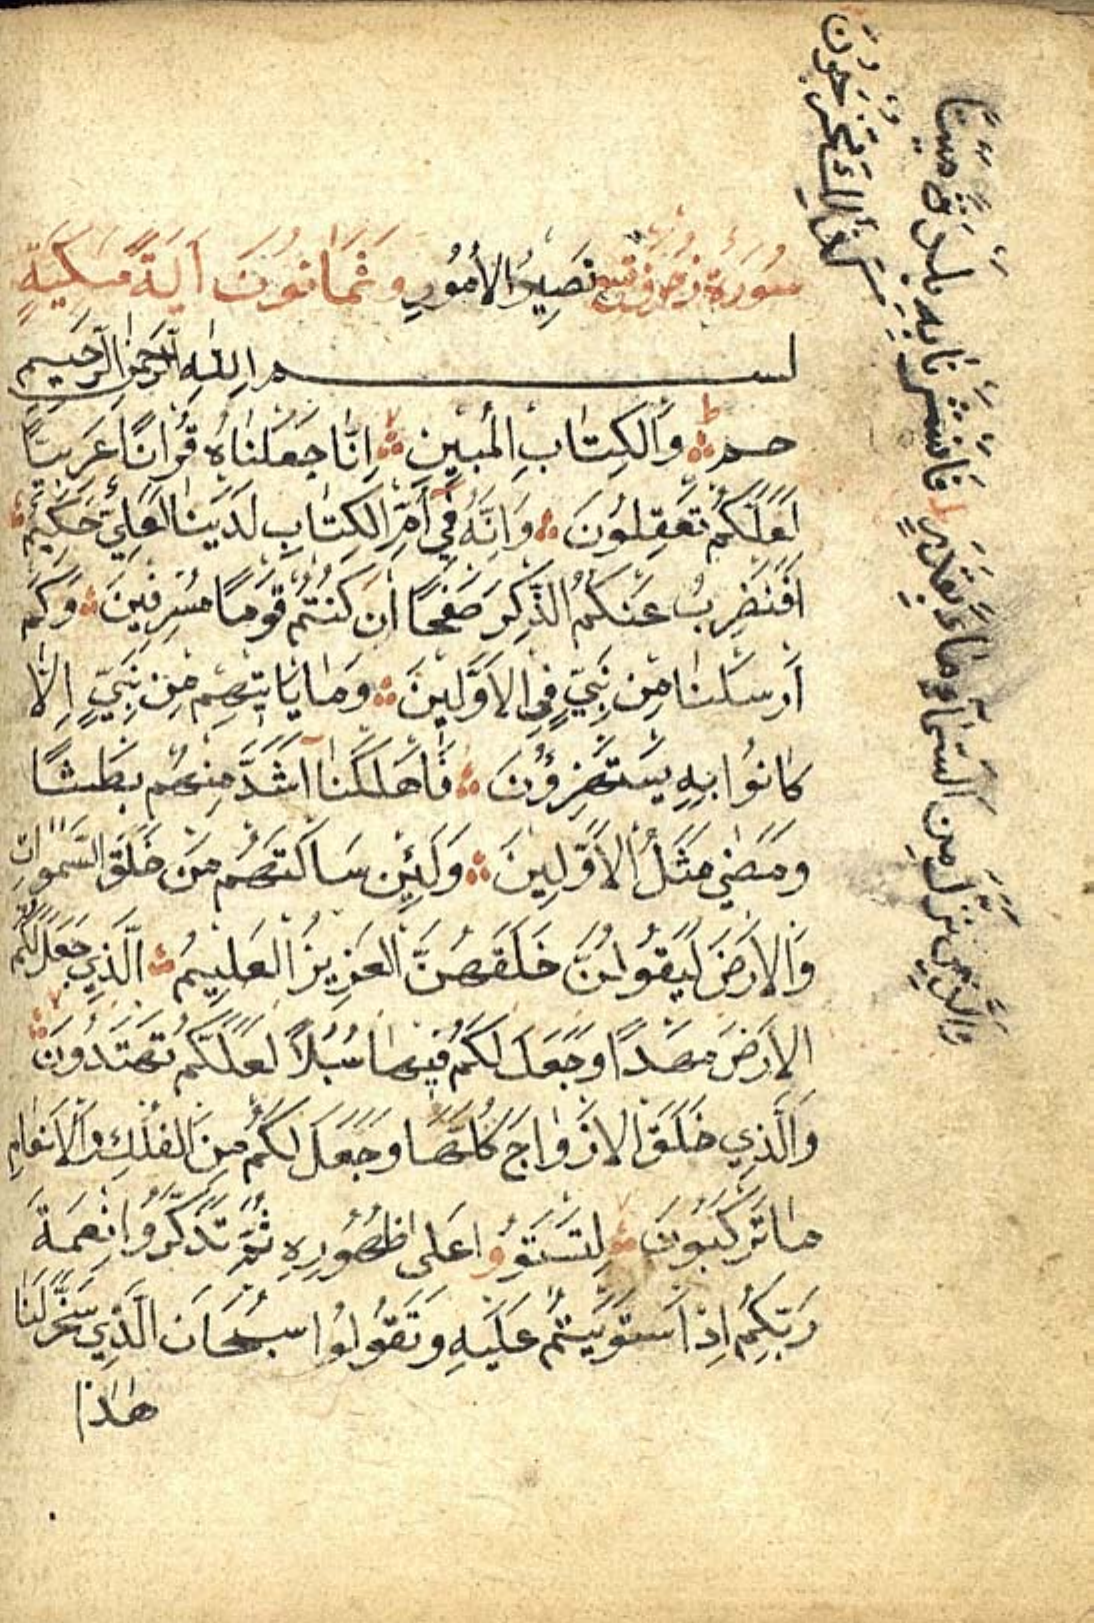 سُورَةُ زخرف تسع تَصِيرُ الأُمُورِ وَثَمَانُونَ آيَةً مَكِّيَةٍ
بسم اللهِ الرَّحْمٰنِ الرَّحِيمِ
حم وَالكِتَابِ المُبِينِ اِنَّا جَعَلْنَاهُ قُرْاٰنًا عَرَبِيًّا
لَعَلَّكُمْ تَعْقِلُونَ وَاِنَّهُ فِي اُمِّ الكِتَابِ لَدَيْنَا لَعَلِيٌّ حَكِيْمٌ
اَفَنَضْرِبُ عَنْكُمُ الذِّكْرَ صَفْحًا اَنْ كُنْتُمْ قَوْمًا مُسْرِفِينَ وَكَمْ
اَرْسَلْنَا مِنْ نَبِيٍّ فِي الاَوَّلِينَ وَمَا يَاْتِيْهِمْ مِنْ نَبِيٍّ اِلَّا
كَانُوا بِهِ يَسْتَهْزِؤُنَ فَاَهْلَكْنَا اَشَدَّ مِنْهُمْ بَطْشًا
وَمَضٰى مَثَلُ الاَوَّلِينَ وَلَئِنْ سَاَلْتَهُمْ مَنْ خَلَقَ السَّمٰوَاتِ
وَالاَرْضَ لَيَقُولُنَّ خَلَقَهُنَّ العَزِيزُ العَلِيمُ الَّذِي جَعَلَ لَكُمُ
الاَرْضَ مَهْدًا وَجَعَلَ لَكُمْ فِيْهَا سُبُلًا لَعَلَّكُمْ تَهْتَدُونَ
وَالَّذِي خَلَقَ الاَزْوَاجَ كُلَّهَا وَجَعَلَ لَكُمْ مِنَ الفُلْكِ وَالاَنْعَامِ
مَا تَرْكَبُونَ لِتَسْتَوُوا عَلٰى ظُهُوْرِهِ ثُمَّ تَذْكُرُوا نِعْمَةَ
رَبِّكُمْ اِذَا اسْتَوَيْتُمْ عَلَيْهِ وَتَقُولُوا سُبْحَانَ الَّذِي سَخَّرَ لَنَا
هٰذَا
وَالَّذِي نَزَّلَ مِنَ السَّمَاءِ مَاءً بِقَدَرٍ فَاَنْشَرْنَا بِهِ بَلْدَةً مَيْتًا
كَذٰلِكَ تُخْرَجُونَ